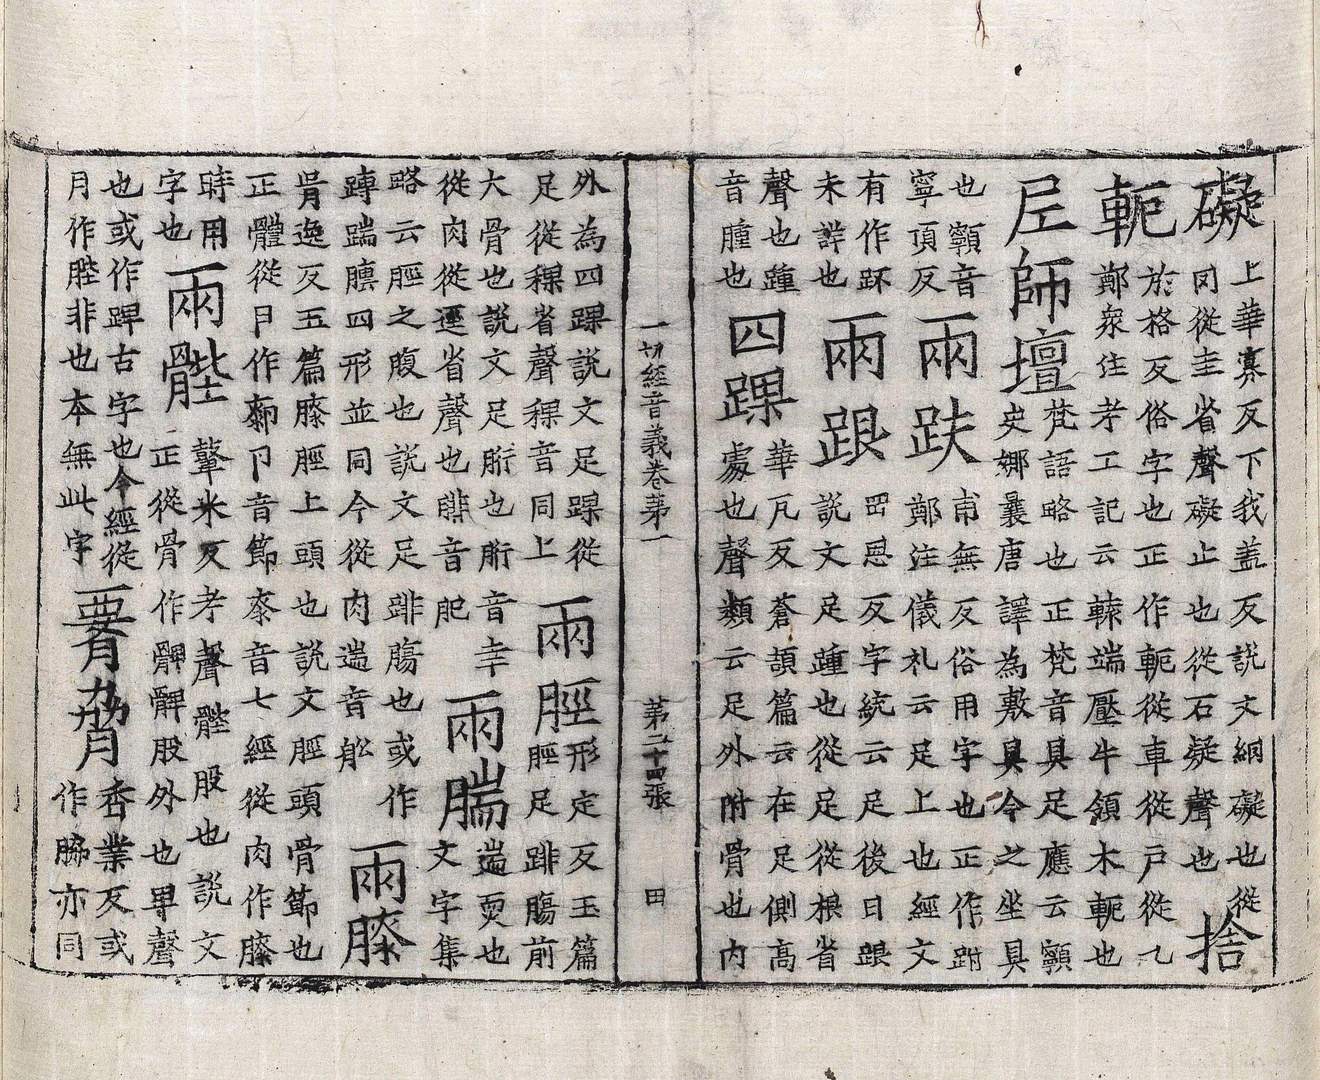 礙 上華寡反下我盖反説文綱礙也從
罔從圭省聲礙止也從石疑聲也 捨
軛 於格反俗字也正作軛從車從戶從乙
鄭衆注考工記云轅端壓牛領木軛也
𡰱師壇 梵語略也正梵音具足應云𩕳
史娜曩唐譯為敷具今之坐具
也𩕳音
寧頂反 兩趺 甫無反俗用字也正作跗
鄭注儀礼云足上也經文
有作趺
未詳也 兩跟 岡恩反字統云足後曰跟
説文足踵也從足從根省
聲也踵
音腫也 四踝 華瓦反蒼頡篇云在足側高
處也聲類云足外附骨也内
一切經音義卷第一 第二十四張 田
外為四踝説文足踝從
足從稞省聲稞音同上 兩脛 形定反玉篇
脛足跰腸前
大骨也説文足胻也胻音幸
從肉從巠省聲也腓音肥 兩腨 遄耎也
文字集
略云脛之腹也説文足跰腸也或作
蹲踹膞四形並同今從肉遄音船 兩膝
胥逸反五篇膝脛上頭也説文脛頭骨節也
正體從卩作厀卩音節桼音七經從肉作膝
時用
字也 兩髀 鼙米反考聲髀股也説文
正從骨作髀髀股外也卑聲
也或作踍古字也今經從
月作䏶非也本無此字 𦝫脅 香業反或
作脇亦同